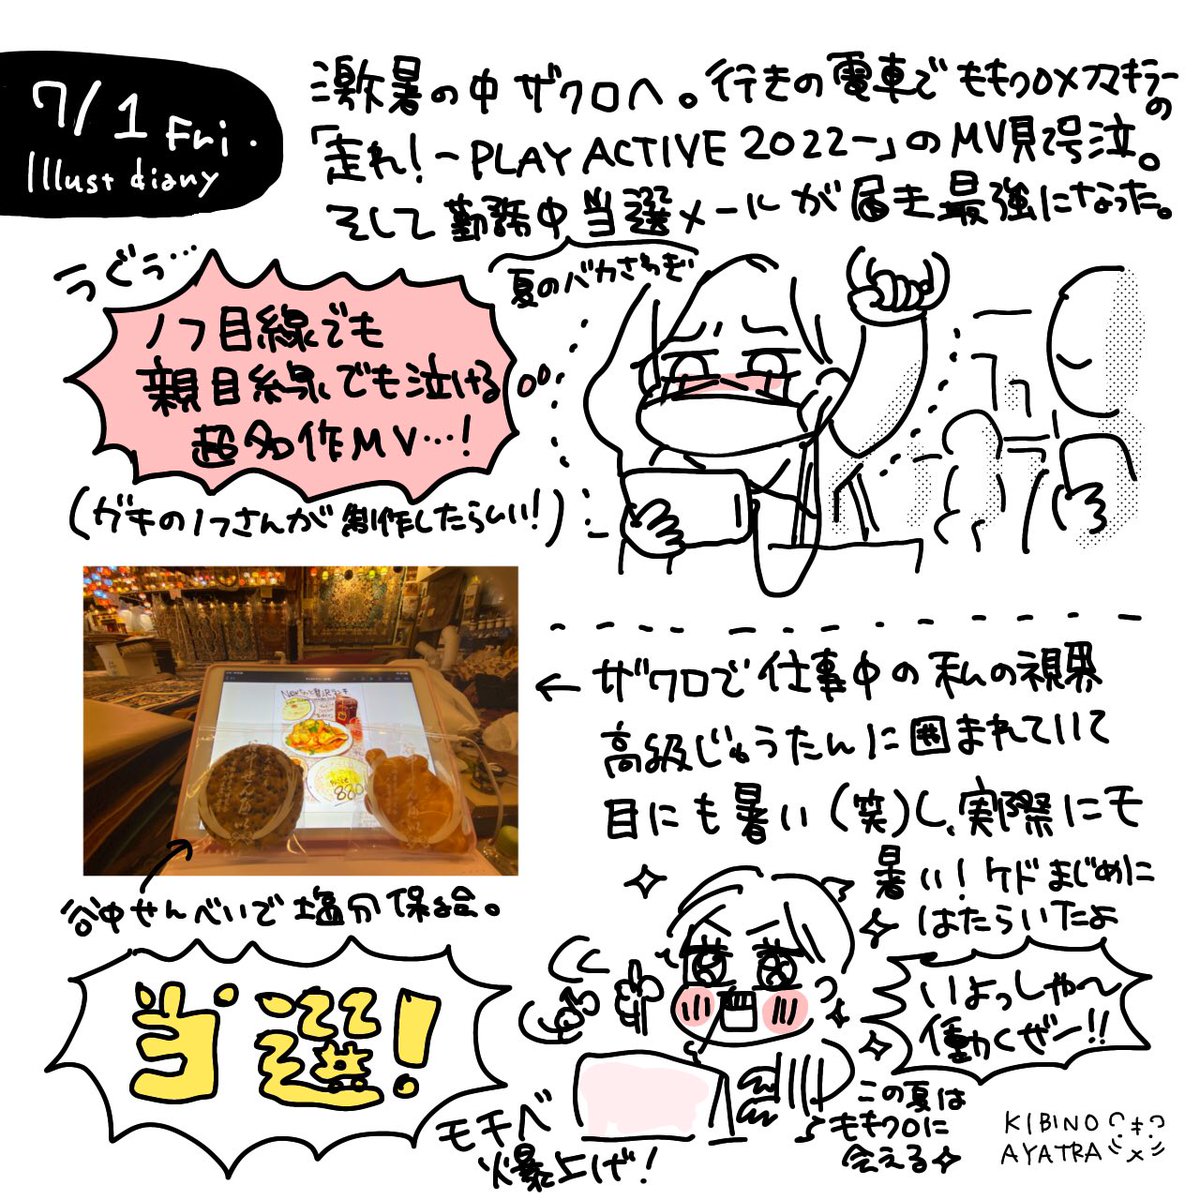 7/1 Fri.
Illust diary
激暑の中ザクロへ。行きの電車でももクロ×フマキラーの
「走れ！-PLAY ACTIVE 2022-」のMV見て号泣。
そして勤務中当選メールが届き最強になった。
夏のバカさわぎ
うぐぅ…
ノフ目線でも
親目線でも泣ける
超名作MV…！
（ガチのノフさんが制作したらしい！）
← ザクロで仕事中の私の視界
高級じゅうたんに囲まれていて
目にも暑い（笑）し、実際にモ
暑い！ケドまじめに
はたらいたよ
880
谷中せんべいで塩分保給。
当選！
いよっしゃ〜
働くぜー!!
モチベ
爆上げ！
この夏は
ももクロに
会える
KIBINO
AYATRA